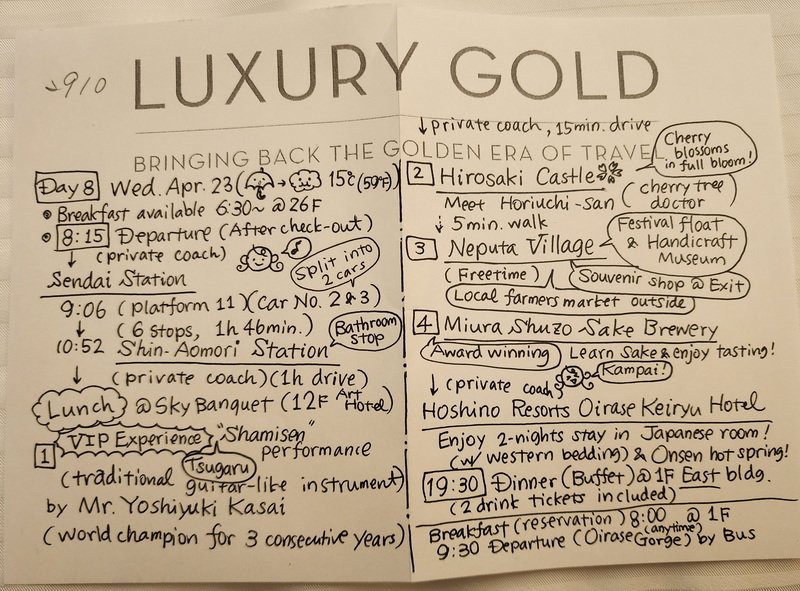 910
LUXURY GOLD
BRINGING BACK THE GOLDEN ERA OF TRAVEL
Day 8 Wed. Apr. 23 ( → 15℃ (59°F))
• Breakfast available 6:30~ @ 26F
• 8:15 Departure (After check-out)
↓ (private coach)
Split into 2 cars
Sendai Station
9:06 (platform 11) (Car No. 2 & 3)
↓ (6 stops, 1h 46min.)
Bathroom stop
10:52 Shin-Aomori Station
↓ (private coach) (1h drive)
Lunch @ Sky Banquet (12F Art Hotel)
1 VIP Experience "Shamisen" performance
Tsugaru
(traditional guitar-like instrument)
by Mr. Yoshiyuki Kasai
(World champion for 3 consecutive years)
↓ private coach, 15min. drive
Cherry blossoms in full bloom!
2 Hirosaki Castle
Meet Horiuchi-San (cherry tree doctor)
↓ 5 min. walk
Festival float & Handicraft Museum
3 Neputa Village
(Freetime) Souvenir shop @ Exit
Local farmers market outside
4 Miura Shuzo Sake Brewery
Award winning Learn Sake & enjoy tasting!
↓ (private coach) Kampai!
Hoshino Resorts Oirase Keiryu Hotel
Enjoy 2-nights stay in Japanese room!
(w/ western bedding) & Onsen hot spring!
19:30 Dinner (Buffet) @ 1F East bldg.
(2 drink tickets included)
Breakfast (reservation) 8:00 (anytime) @ 1F
9:30 Departure (Oirase Gorge) by Bus